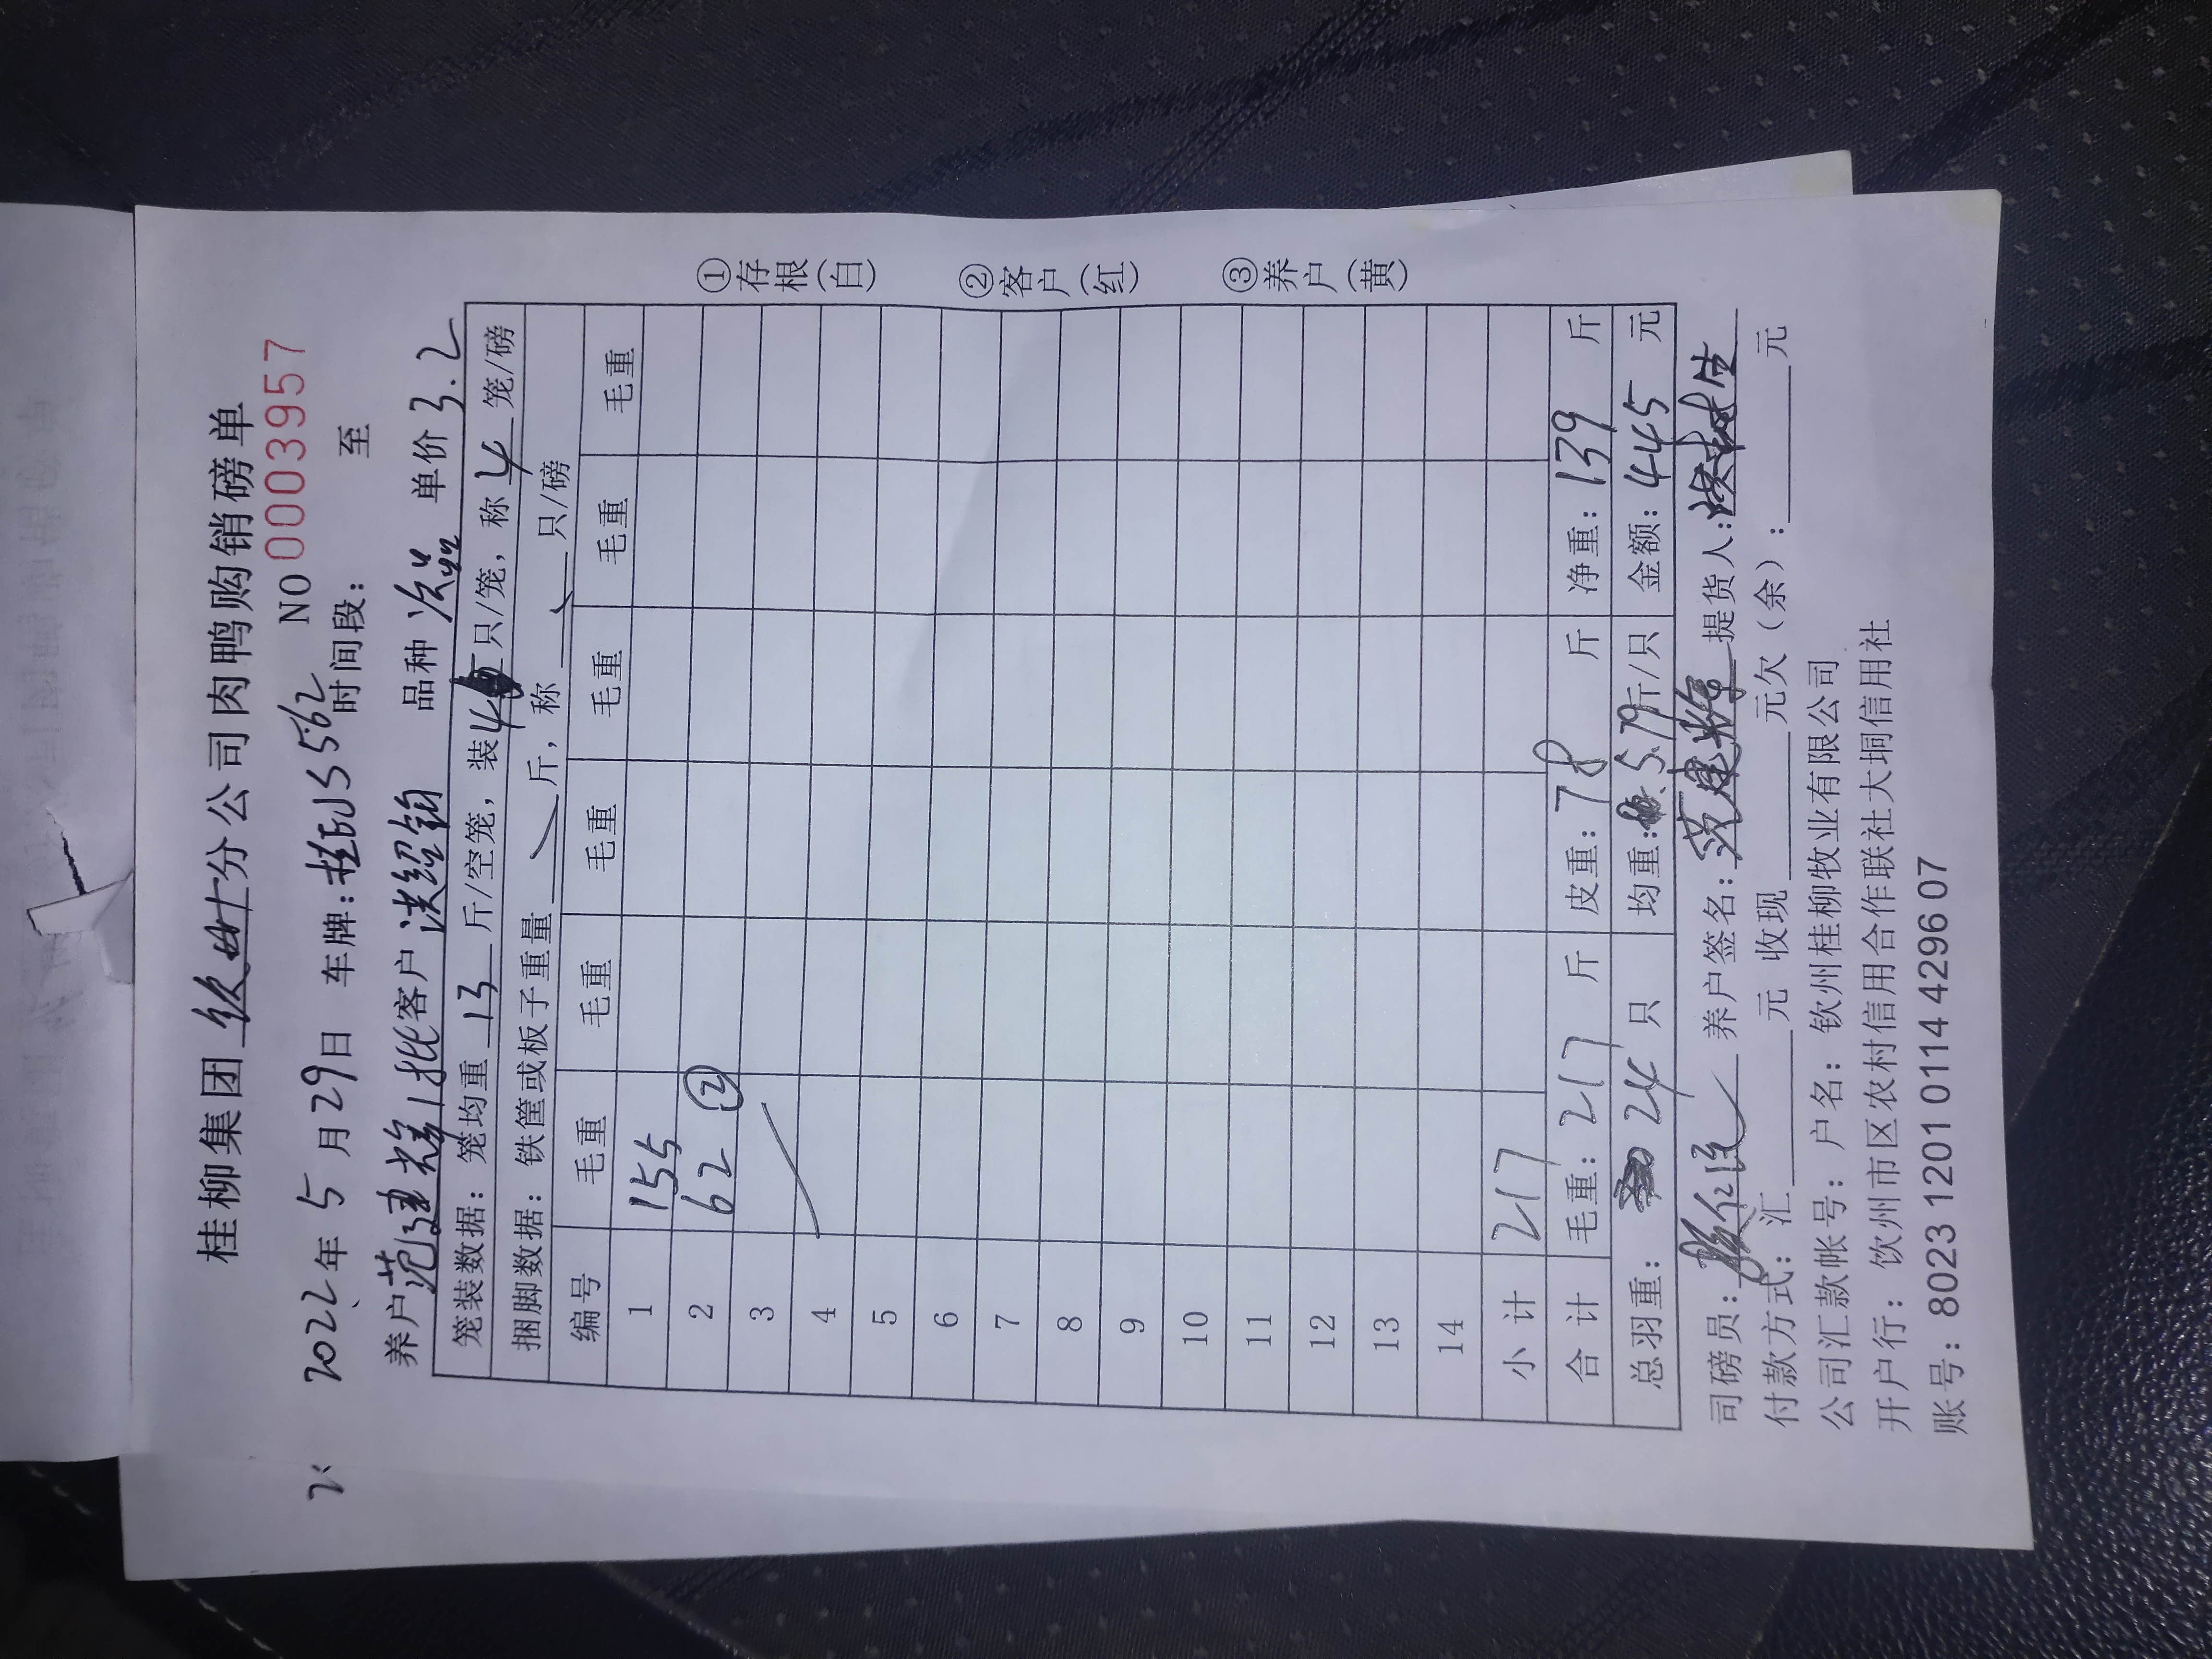 桂柳集团 钦州 分公司肉鸭购销磅单
NO 0003957
2022年 5 月 29日 车牌: 桂N S562 时间段: 至
养户 范建辉1批 客户 洪绍钥 品种 次品 单价 3.2
笼装数据: 笼均重 13 斤/空笼, 装 4 只/笼, 称 4 笼/磅
捆脚数据: 铁筐或板子重量 斤, 称 只/磅
编号 毛重 毛重 毛重 毛重 毛重 毛重
1 155
2 62 ②
3
4
5
6
7
8
9
10
11
12
13
14
小 计 217
合 计 毛重: 217 斤 皮重: 78 斤 净重: 139 斤
总羽重: 24 只 均重: 5.79 斤/只 金额: 445 元
司磅员: 养户签名: 范建辉 提货人:
付款方式: 汇 元 收现 元欠(余): 元
公司汇款帐号: 户名: 钦州桂柳牧业有限公司
开户行: 钦州市区农村信用合作联社大垌信用社
账号: 8023 1201 0114 4296 07
①存根(白)
②客户(红)
③养户(黄)